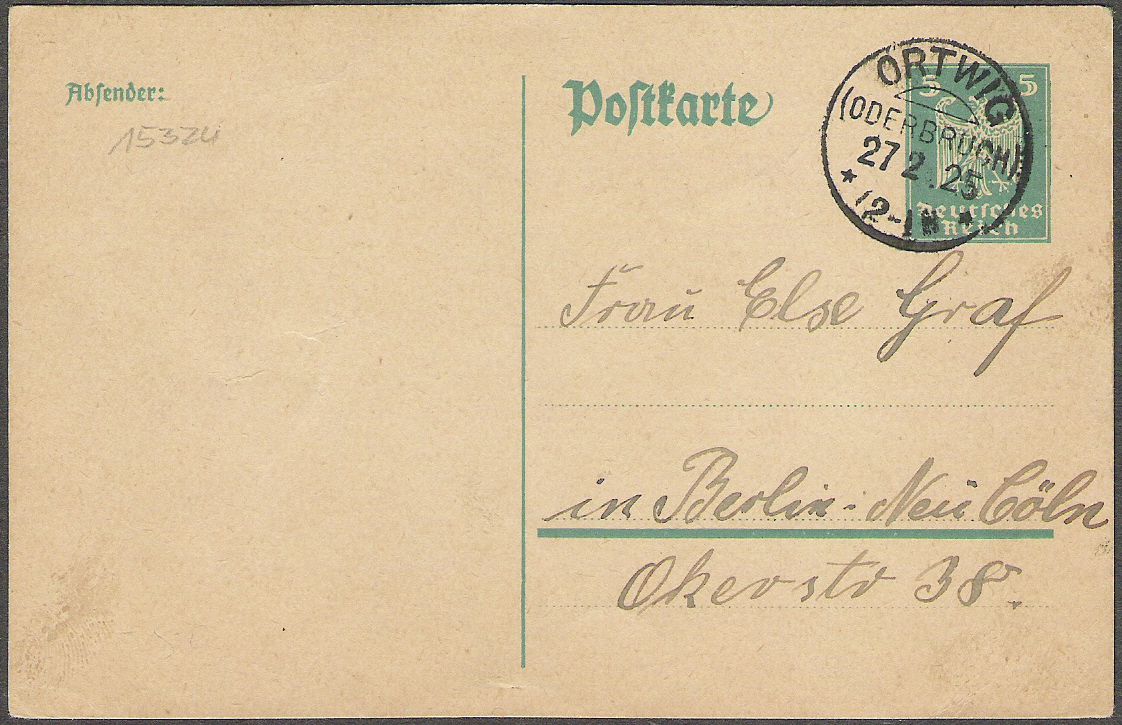 Absender:
15324
Postkarte
5 5
Deutsches
Reich
ORTWIG
(ODERBRUCH)
27 2.25
* 12-1 N *
Frau Else Graf
in Berlin-Neu Cöln
Okerstr 38.